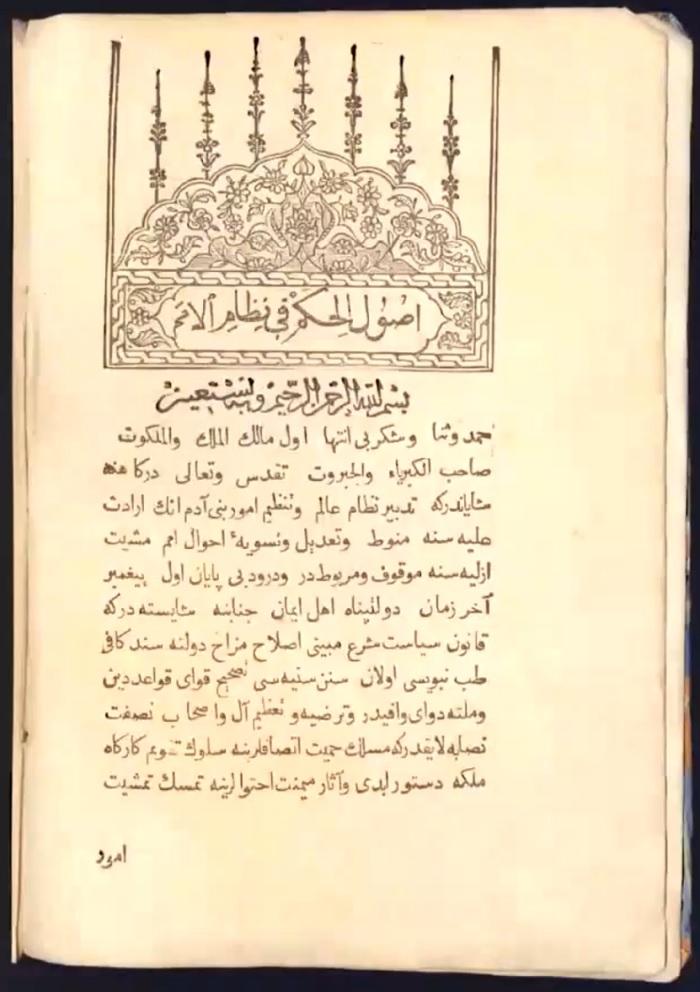 اصول الحكم في نظام الامم
بسم الله الرحمن الرحيم وبه نستعين
حمد وثنا وشكر بی انتها اول مالك الملك والملكوت
صاحب الكبرياء والجبروت تقدس وتعالى درکاهنه
شایاندرکه تدبیر نظام عالم وتنظیم امور بنی آدم انك ارادت
علیه سنه منوط وتعدیل وتسویهٔ احوال امم مشیت
ازلیه سنه موقوف ومربوطدر ودرود بی پایان اول پیغمبر
آخر زمان دولتپناه اهل ایمان جنابنه شایسته درکه
قانون سیاست شرع مبینی اصلاح مزاج دولته سند کافی
طب نبویسی اولان سنن سنیه سی تصحیح قوای قواعد دین
وملته دوای وافیدر وترضیه و تعظیم آل واصحاب نصفت
نصابه لایقدرکه مسلك حمیت اتصافلرینه سلوك تقویم کارکاه
ملکه دستور ابدی وآثار میمنت احتوالرینه تمسك تمشیت
امور